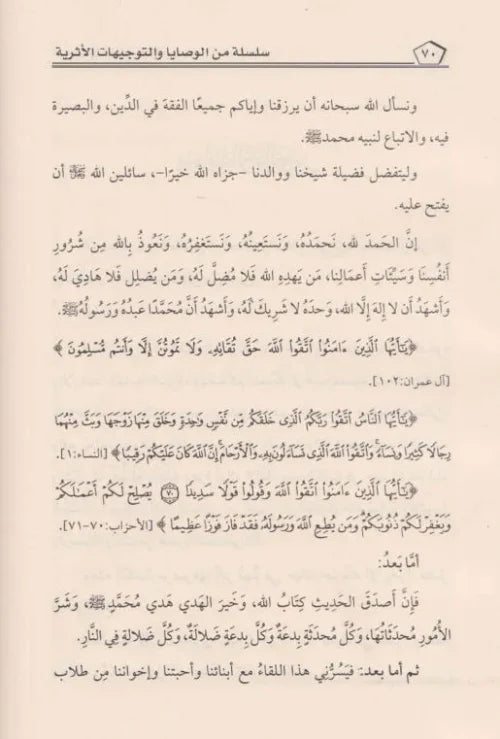 ٧٠
سلسلة من الوصايا والتوجيهات الأثرية
ونسأل الله سبحانه أن يرزقنا وإياكم جميعًا الفقهَ في الدِّين، والبصيرة
فيه، والاتباع لنبيه محمدٍ ﷺ.
وليتفضل فضيلة شيخنا ووالدنا -جزاه الله خيرًا-، سائلين الله ﷻ أن
يفتح عليه.
إنَّ الحمدَ لله، نَحمَدُهُ، ونَستَعِينُهُ، ونَستَغفِرُهُ، ونَعُوذُ بِالله مِن شُرُورِ
أَنفُسِنَا وَسَيِّئَاتِ أَعمَالِنا، مَن يَهدِهِ الله فَلا مُضِلَّ لَهُ، وَمَن يُضلِل فَلا هَادِيَ لَهُ،
وَأَشهَدُ أَن لا إِلهَ إِلَّا الله، وَحدَهُ لا شَرِيكَ لَهُ، وَأَشهَدُ أَنَّ مُحَمَّدًا عَبدُهُ وَرَسُولُهُ ﷺ.
﴿يَٰٓأَيُّهَا ٱلَّذِينَ ءَامَنُوا۟ ٱتَّقُوا۟ ٱللَّهَ حَقَّ تُقَاتِهِۦ وَلَا تَمُوتُنَّ إِلَّا وَأَنتُم مُّسْلِمُونَ﴾
[آل عمران:١٠٢].
﴿يَٰٓأَيُّهَا ٱلنَّاسُ ٱتَّقُوا۟ رَبَّكُمُ ٱلَّذِى خَلَقَكُم مِّن نَّفْسٍ وَٰحِدَةٍ وَخَلَقَ مِنْهَا زَوْجَهَا وَبَثَّ مِنْهُمَا
رِجَالًا كَثِيرًا وَنِسَآءً ۚ وَٱتَّقُوا۟ ٱللَّهَ ٱلَّذِى تَسَآءَلُونَ بِهِۦ وَٱلْأَرْحَامَ ۚ إِنَّ ٱللَّهَ كَانَ عَلَيْكُمْ رَقِيبًا﴾ [النساء:١].
﴿يَٰٓأَيُّهَا ٱلَّذِينَ ءَامَنُوا۟ ٱتَّقُوا۟ ٱللَّهَ وَقُولُوا۟ قَوْلًا سَدِيدًا ٧٠ يُصْلِحْ لَكُمْ أَعْمَٰلَكُمْ
وَيَغْفِرْ لَكُمْ ذُنُوبَكُمْ ۗ وَمَن يُطِعِ ٱللَّهَ وَرَسُولَهُۥ فَقَدْ فَازَ فَوْزًا عَظِيمًا﴾ [الأحزاب:٧٠-٧١].
أمَّا بَعدُ:
فَإِنَّ أَصدَقَ الحَدِيثِ كِتَابُ الله، وَخَيرَ الهَدي هَديُ مُحَمَّدٍ ﷺ، وَشَرَّ
الأُمُورِ مُحدَثَاتُهَا، وَكُلُّ مُحدَثَةٍ بِدعَةٌ وَكُلُّ بِدعَةٍ ضَلالَةٌ، وَكُلُّ ضلالةٍ في النَّارِ.
ثم أما بعد: فيَسُرُّني هذا اللقاءُ مع أبنائنا وأحبتنا وإخواننا مِن طلاب